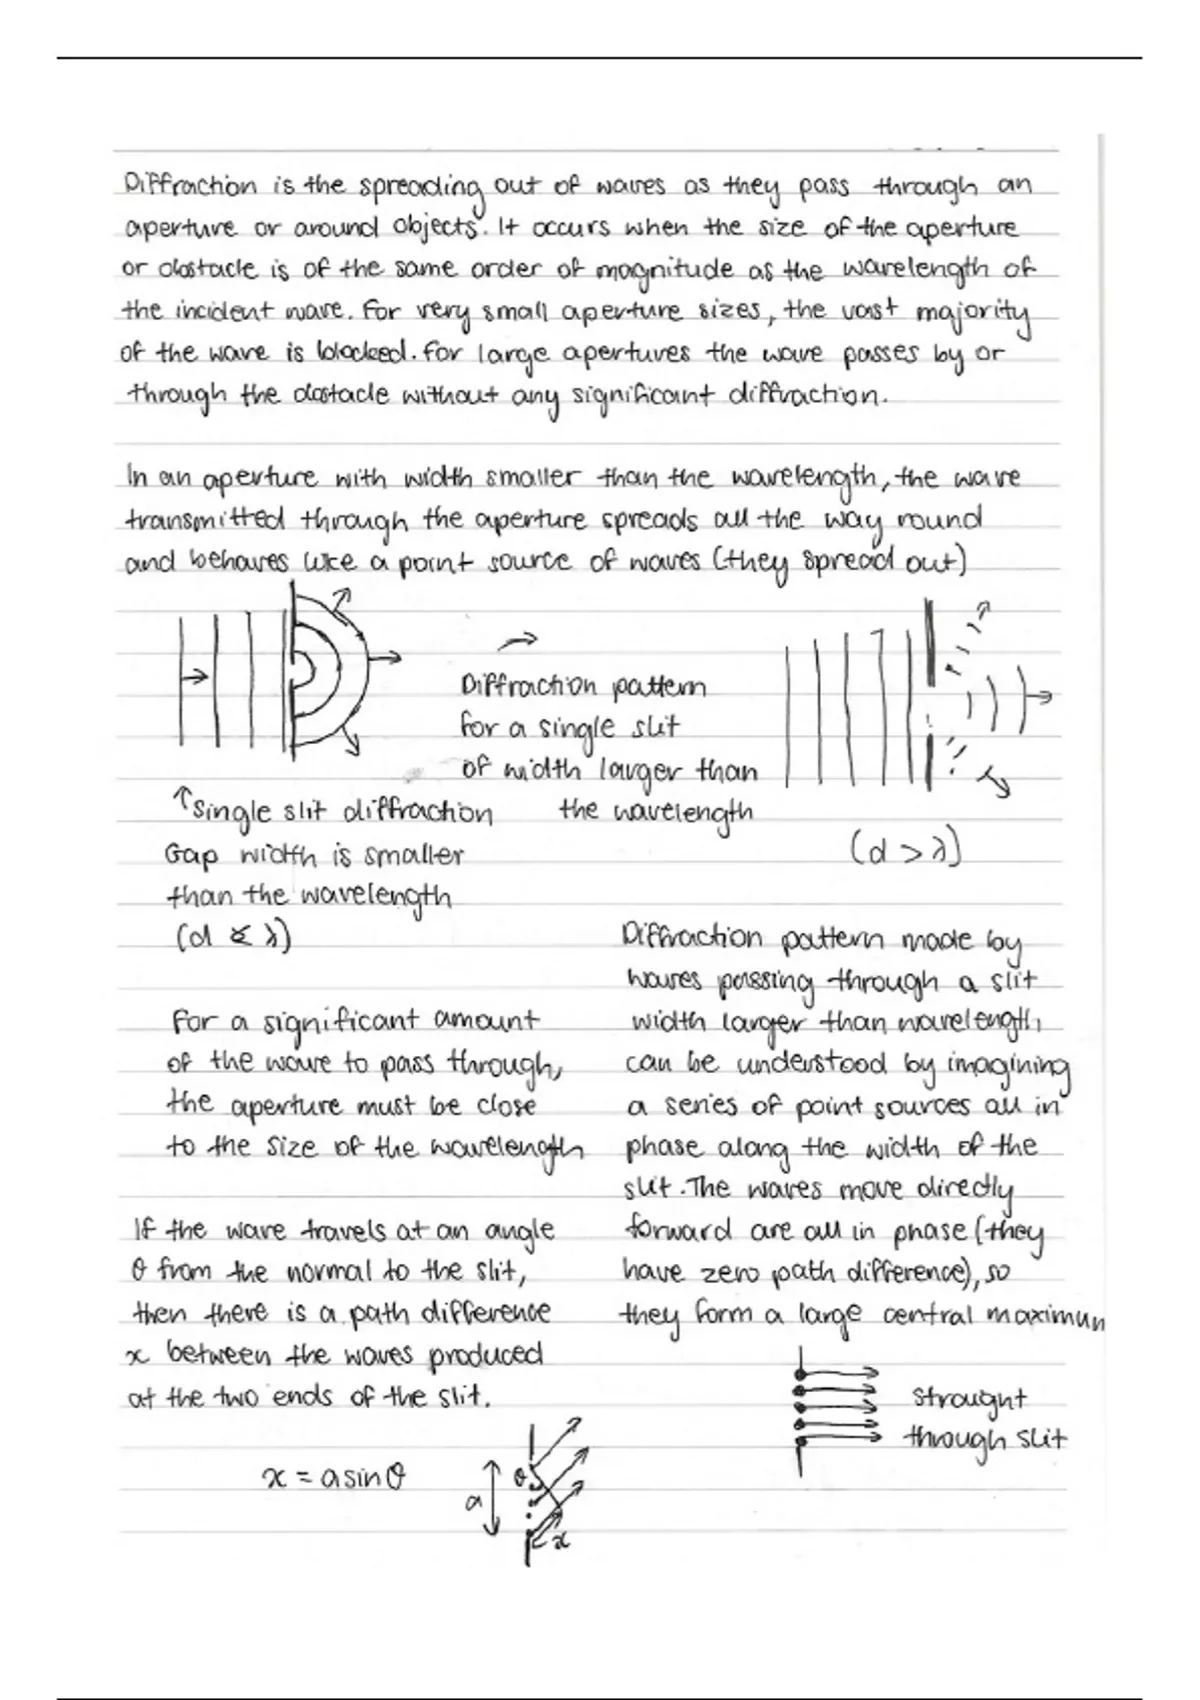 Diffraction is the spreading out of waves as they pass through an
aperture or around objects. It occurs when the size of the aperture
or obstacle is of the same order of magnitude as the wavelength of
the incident wave. For very small aperture sizes, the vast majority
of the wave is blocked. For large apertures the wave passes by or
through the obstacle without any significant diffraction.
In an aperture with width smaller than the wavelength, the wave
transmitted through the aperture spreads all the way round
and behaves like a point source of waves (they spread out)
Diffraction pattern
for a single slit
of width larger than
the wavelength
(d > λ)
↑Single slit diffraction
Gap width is smaller
than the wavelength
(d < λ)
For a significant amount
of the wave to pass through,
the aperture must be close
to the size of the wavelength
If the wave travels at an angle
θ from the normal to the slit,
then there is a path difference
x between the waves produced
at the two ends of the slit.
x = a sin θ
a
θ
x
Diffraction pattern made by
waves passing through a slit
width larger than wavelength
can be understood by imagining
a series of point sources all in
phase along the width of the
slit. The waves move directly
forward are all in phase (they
have zero path difference), so
they form a large central maximum
straught
through slit